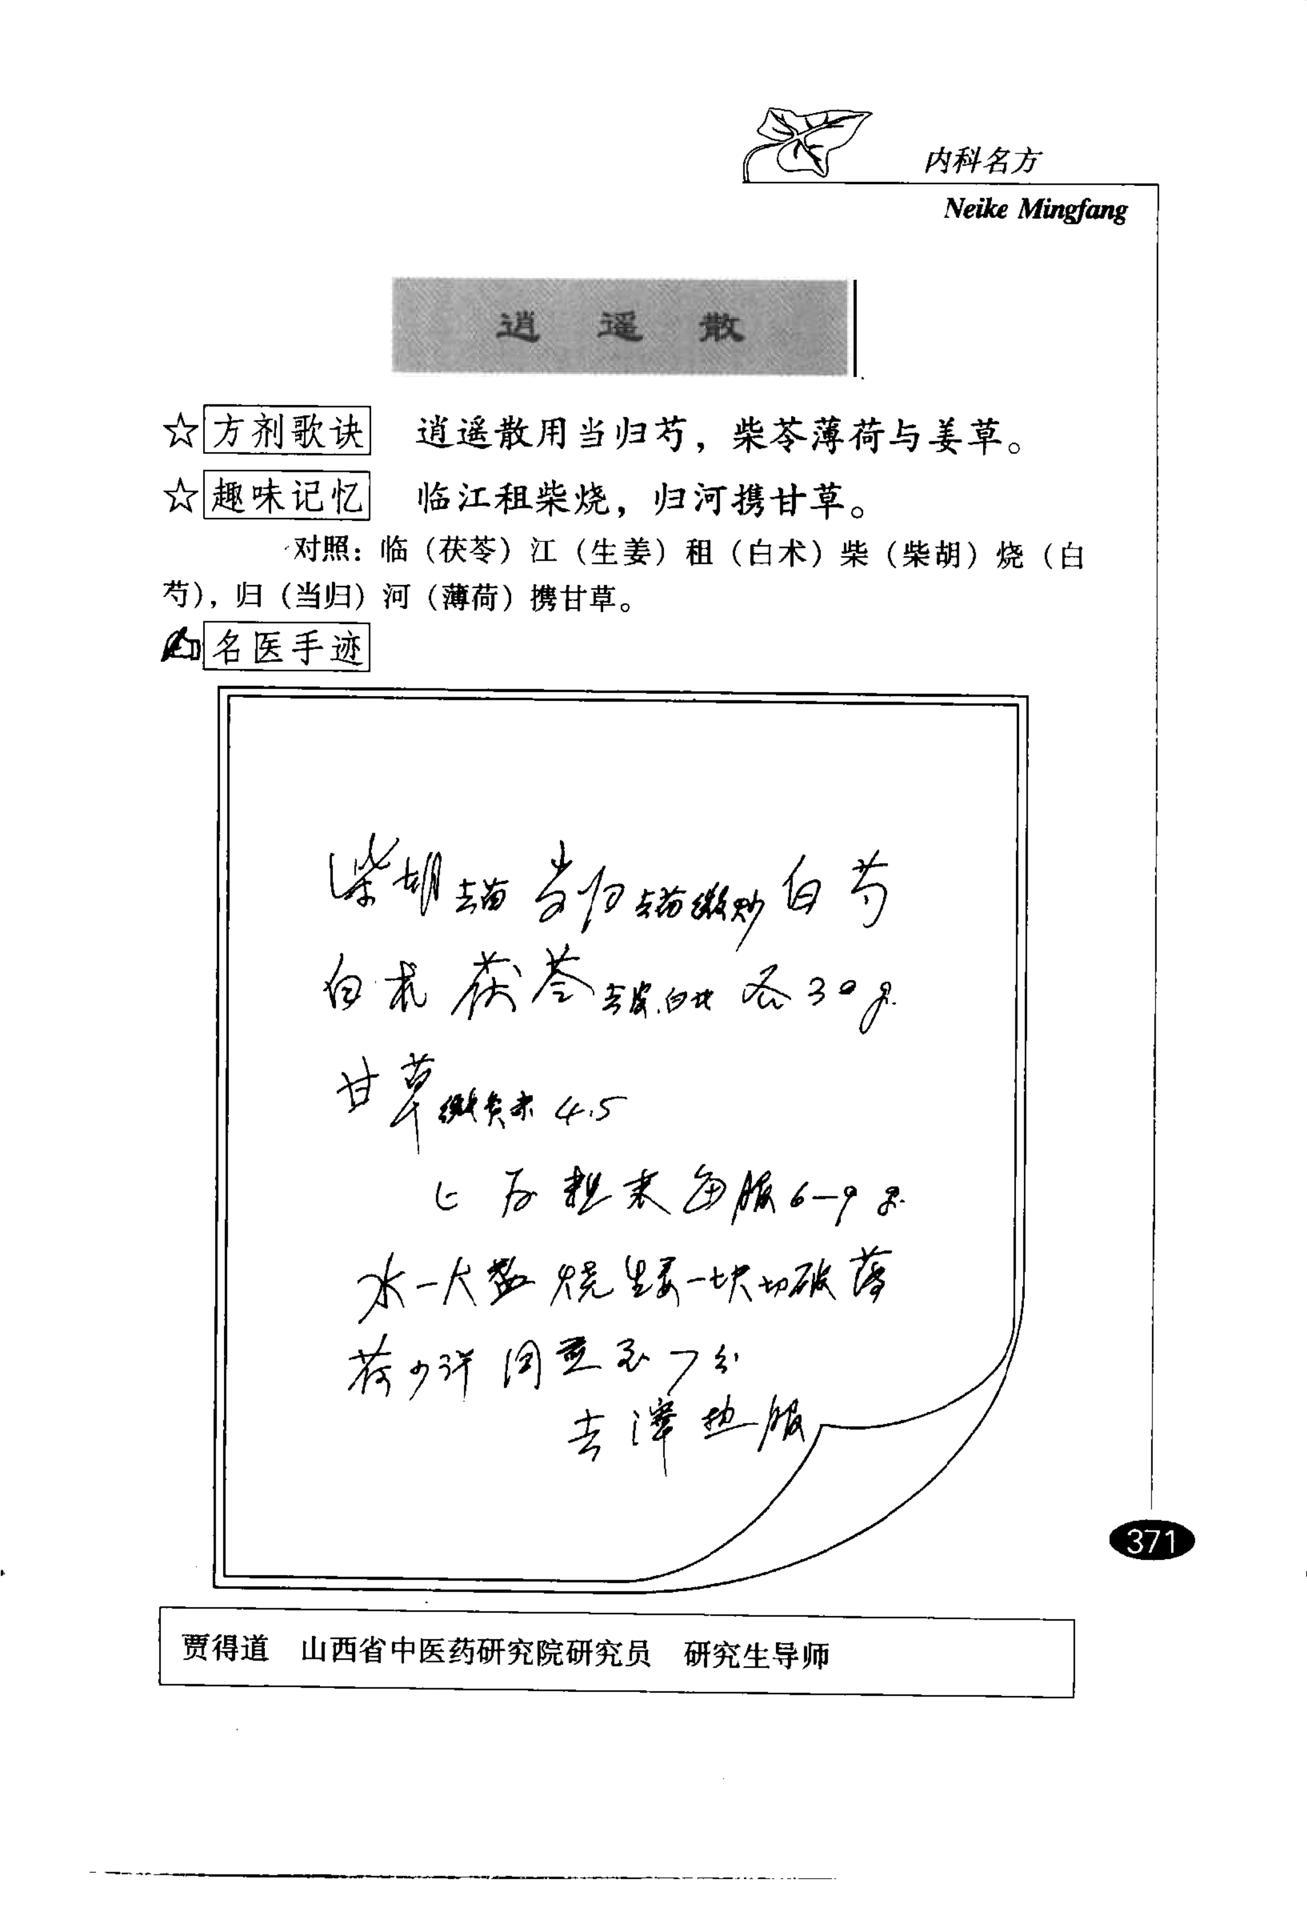 内科名方
Neike Mingfang
逍遥散
☆方剂歌诀 逍遥散用当归芍，柴苓薄荷与姜草。
☆趣味记忆 临江租柴烧，归河携甘草。
对照：临（茯苓）江（生姜）租（白术）柴（柴胡）烧（白
芍），归（当归）河（薄荷）携甘草。
名医手迹
柴胡去苗 当归去苗微炒 白芍
白术 茯苓去皮.白 各30g.
甘草微炙赤 4.5
上为粗末每服6—9g.
水一大盏 烧生姜一块切破薄
荷少许 同煎至七分
去滓热服
371
贾得道 山西省中医药研究院研究员 研究生导师